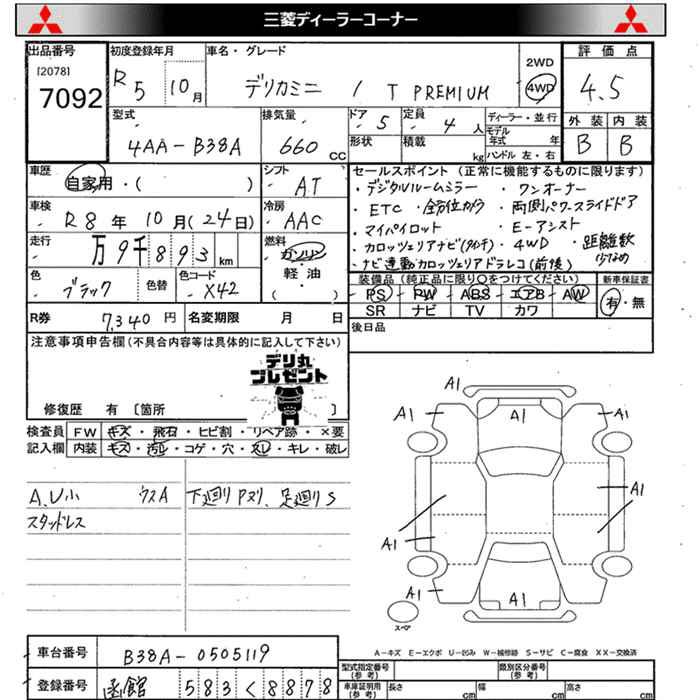 三菱ディーラーコーナー
出品番号 初度登録年月 車名・グレード 2WD 評価点
[2078] 7092 R5 10月 デリカミニ / T PREMIUM 4WD 4.5
型式 排気量 ドア 5 定員 4人 ディーラー・並行 外装 内装
4AA-B38A 660 CC 形状 積載 kg モデル年式 年 B B
ハンドル 左・右
車歴 自家用・( ) シフト AT セールスポイント (正常に機能するものに限ります)
・デジタルルームミラー ・ワンオーナー
車検 R8年10月(24日) 冷房 AAC ETC ・全方位カメラ ・両側パワースライドドア
・マイパイロット ・E-アシスト
走行 万9千893km 燃料 ガソリン ・カロッツェリアナビ(9インチ) ・4WD ・距離数(少なめ)
軽油 ( ) ・ナビ連動カロッツェリアドラレコ(前後)
色 ブラック 色替 色コード X42 装備品 (純正品に限り○をつけてください) 新車保証書
PS PW ABS エアB AW 有・無
SR ナビ TV カワ
R券 7,340円 名変期限 月 日 後日品
注意事項申告欄(不具合内容等は具体的に記入して下さい)
デリ丸
プレゼント
修復歴 有 〔箇所 〕
検査員 FW キズ・飛石・ヒビ割・リペア跡・×要
記入欄 内装 キズ・汚レ・コゲ・穴・スレ・キレ・破レ
A.U小 ウスA 下廻りPヌリ、足廻りS
スタッドレス
A1
A1 A1 A1
A1
A1
A1 A1
スペア
A-キズ E-エクボ U-凹み W-補修跡 S-サビ C-腐食 XX-交換済
車台番号 B38A-0505119 型式指定番号(参考) 類別区分番号(参考)
登録番号 函館 583 く 8878 車庫証明用(参考) 長さ cm 幅 cm 高さ cm